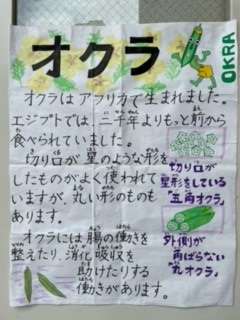 オクラ
OKRA
オクラはアフリカで生まれました。
エジプトでは、二千年よりもっと前から
食べられていました。
切り口が星のような形を
したものがよく使われて
いますが、丸い形のものも
あります。
オクラには腸の働きを
整えたり、消化吸収を
助けたりする
働きがあります。
切り口が
星形をしている
「五角オクラ」
外側が
角ばらない
「丸オクラ」